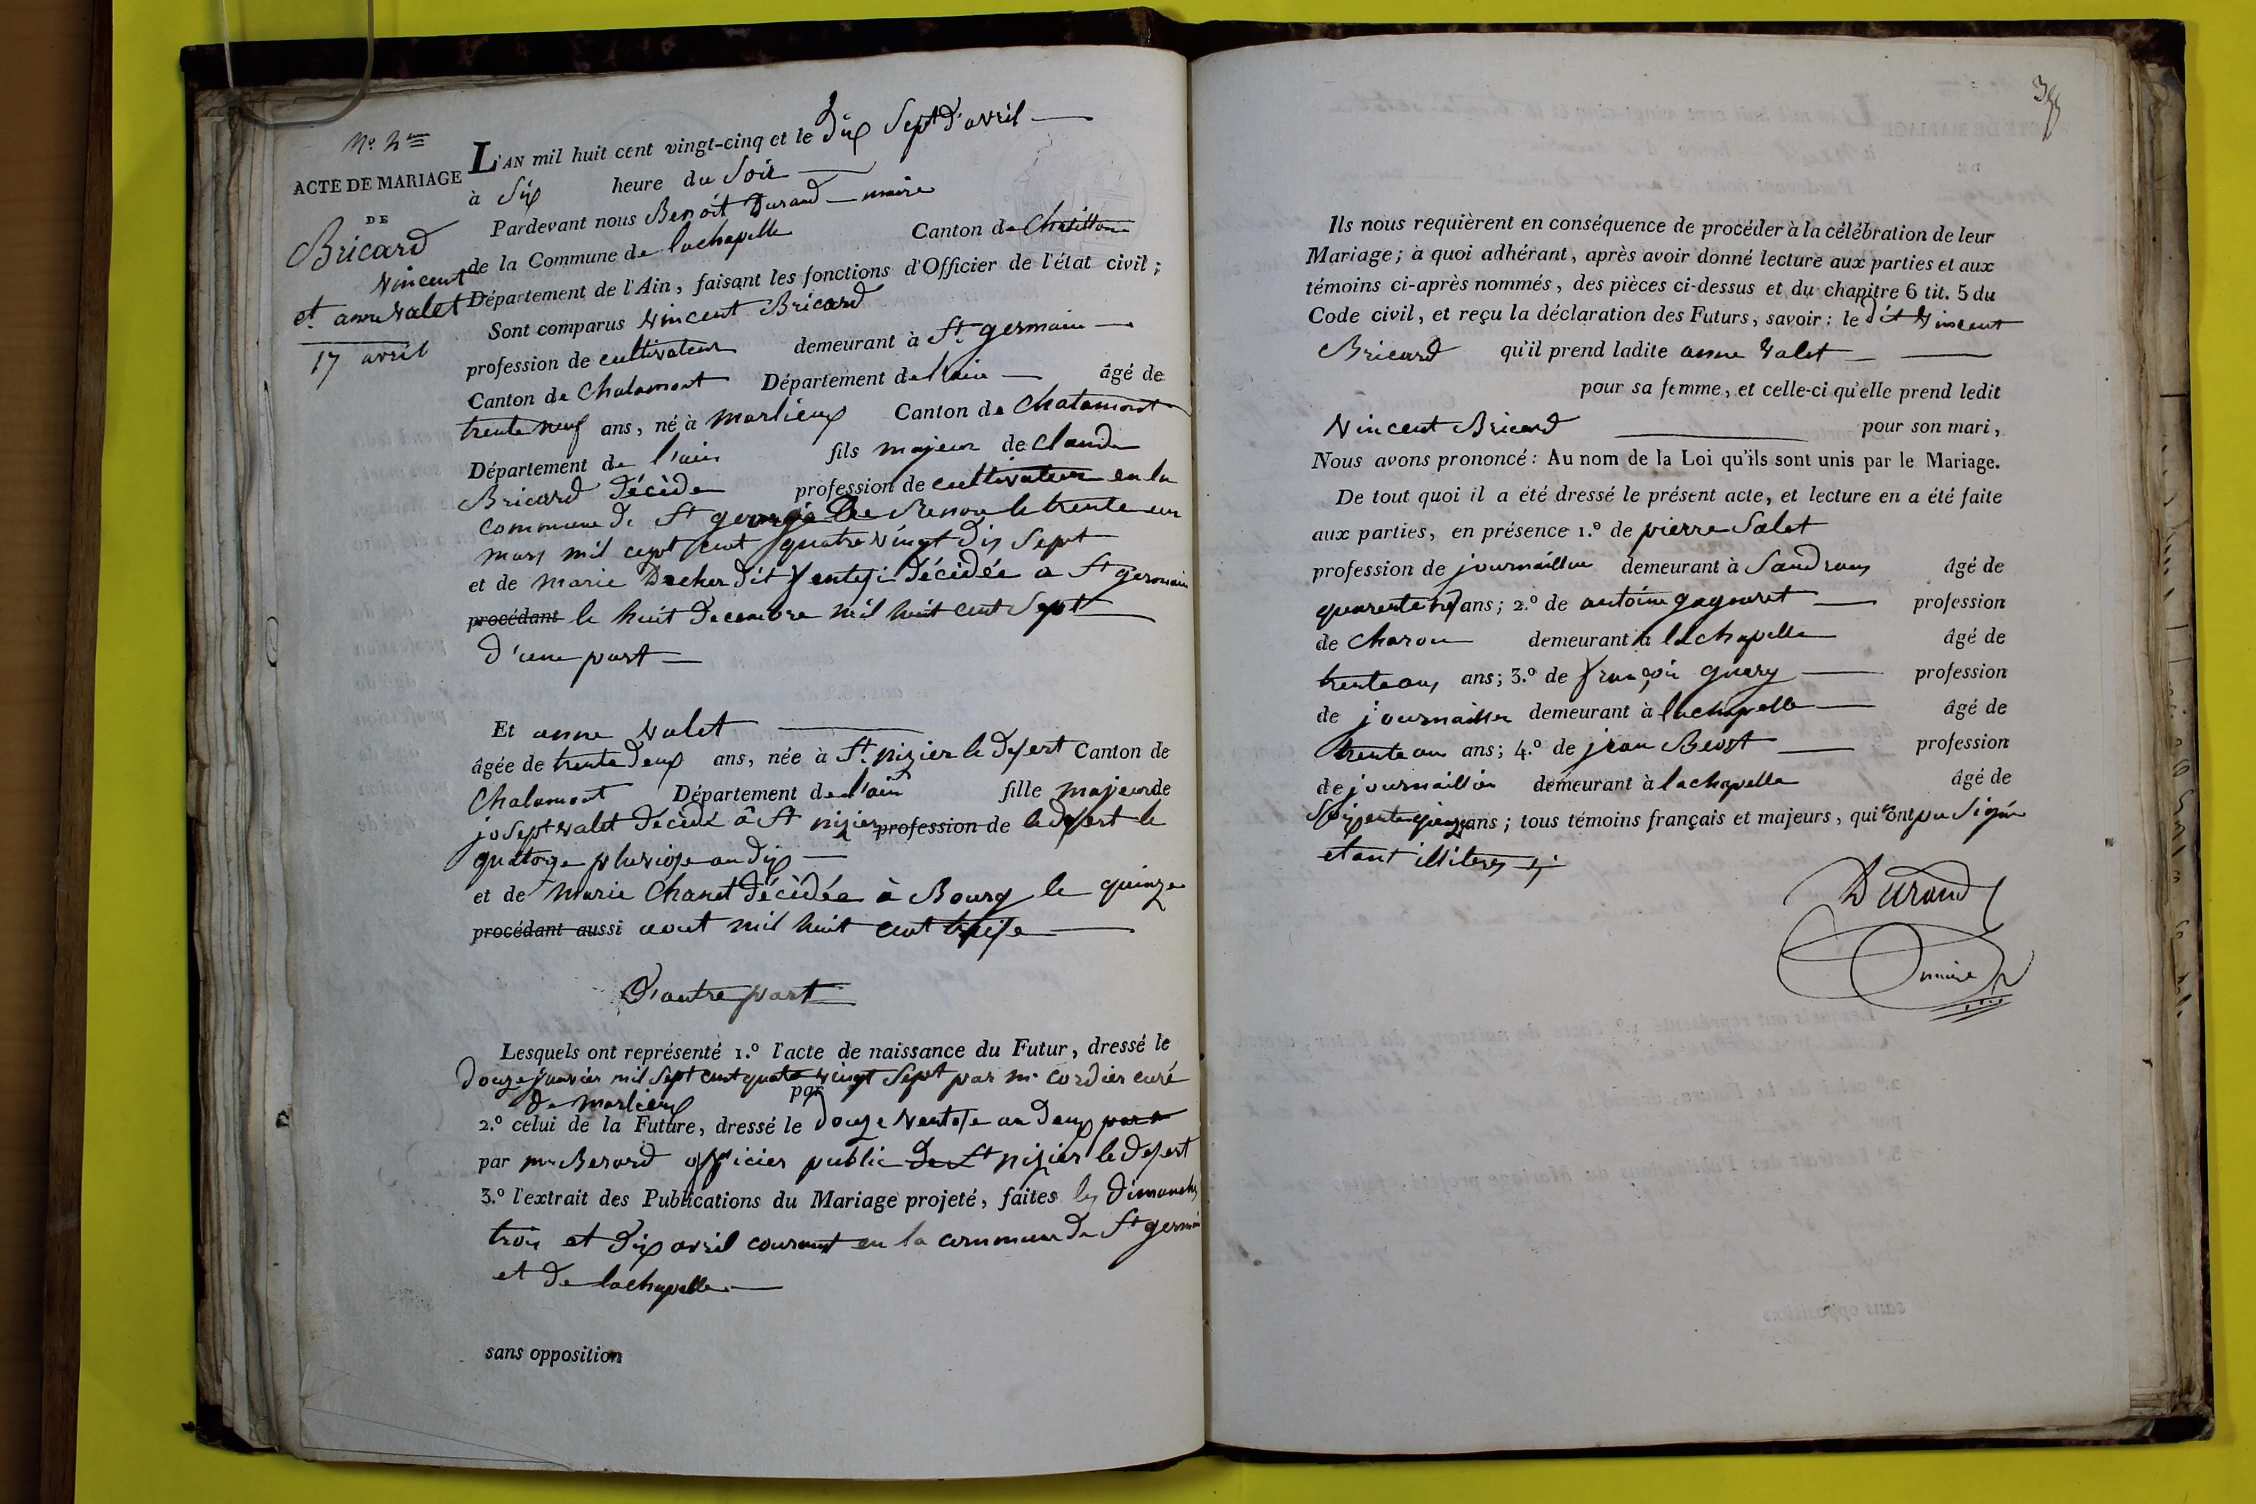 ACTE DE MARIAGE
DE
Bricard
Vincent
et anne Valet
17 avril
L'AN mil huit cent vingt-cinq et le dix Sept d'avril
à Six heure du Soir
Pardevant nous Benoit Durand maire
de la Commune de lachapelle Canton de Chatillon
Département de l'Ain, faisant les fonctions d'Officier de l'état civil;
Sont comparus Vincent Bricard
profession de cultivateur demeurant à St germain
Canton de Chalamont Département de l'ain âgé de
trente neuf ans, né à marlieux Canton de Chalamont
Département de l'ain fils majeur de claude
Bricard décédé profession de cultivateur en la
commune de St george de Renon le trente un
mars mil cept cent quatre vingt dix Sept
et de marie décédée a St germain
procédant le huit decembre mil huit cent Sept
d'une part
Et anne Valet
âgée de trente deux ans, née à St. nizier le desert Canton de
Chalamont Département de l'ain fille majeur de
josept Valet décédé â St nizier profession de le desert le
quatorze pluviose an dix
et de marie Chanet décédée à Bourg le quinze
procédant aussi aout mil huit cent treise
D'autre part
Lesquels ont représenté 1.º l'acte de naissance du Futur, dressé le
douze janvier mil Sept cent quatre vingt Sept par mr cordier curé
de marlieux
2.º celui de la Future, dressé le douze Ventose an deux par
par mr Berard officier public de St nizier le desert
3.º l'extrait des Publications du Mariage projeté, faites les dimanches
trois et dix avril courant en la commune de St germain
et de lachapelle
sans opposition
Ils nous requièrent en conséquence de procéder à la célébration de leur
Mariage; à quoi adhérant, après avoir donné lecture aux parties et aux
témoins ci-après nommés, des pièces ci-dessus et du chapitre 6 tit. 5 du
Code civil, et reçu la déclaration des Futurs, savoir: le dit Vincent
Bricard qu'il prend ladite anne Valet
pour sa femme, et celle-ci qu'elle prend ledit
Vincent Bricard pour son mari,
Nous avons prononcé: Au nom de la Loi qu'ils sont unis par le Mariage.
De tout quoi il a été dressé le présent acte, et lecture en a été faite
aux parties, en présence 1.º de pierre Salet
profession de journaillier demeurant à Sandrans âgé de
quarente ans; 2.º de antoine gagneret profession
de charon demeurant à lachapelle âgé de
trente ans; 3.º de françois guery profession
de journaillier demeurant à lachapelle âgé de
trente ans; 4.º de jean Beost profession
de journaillier demeurant à lachapelle âgé de
Soixente quinze ans; tous témoins français et majeurs, qui n'ont pu Signé
etant
Durand
maire